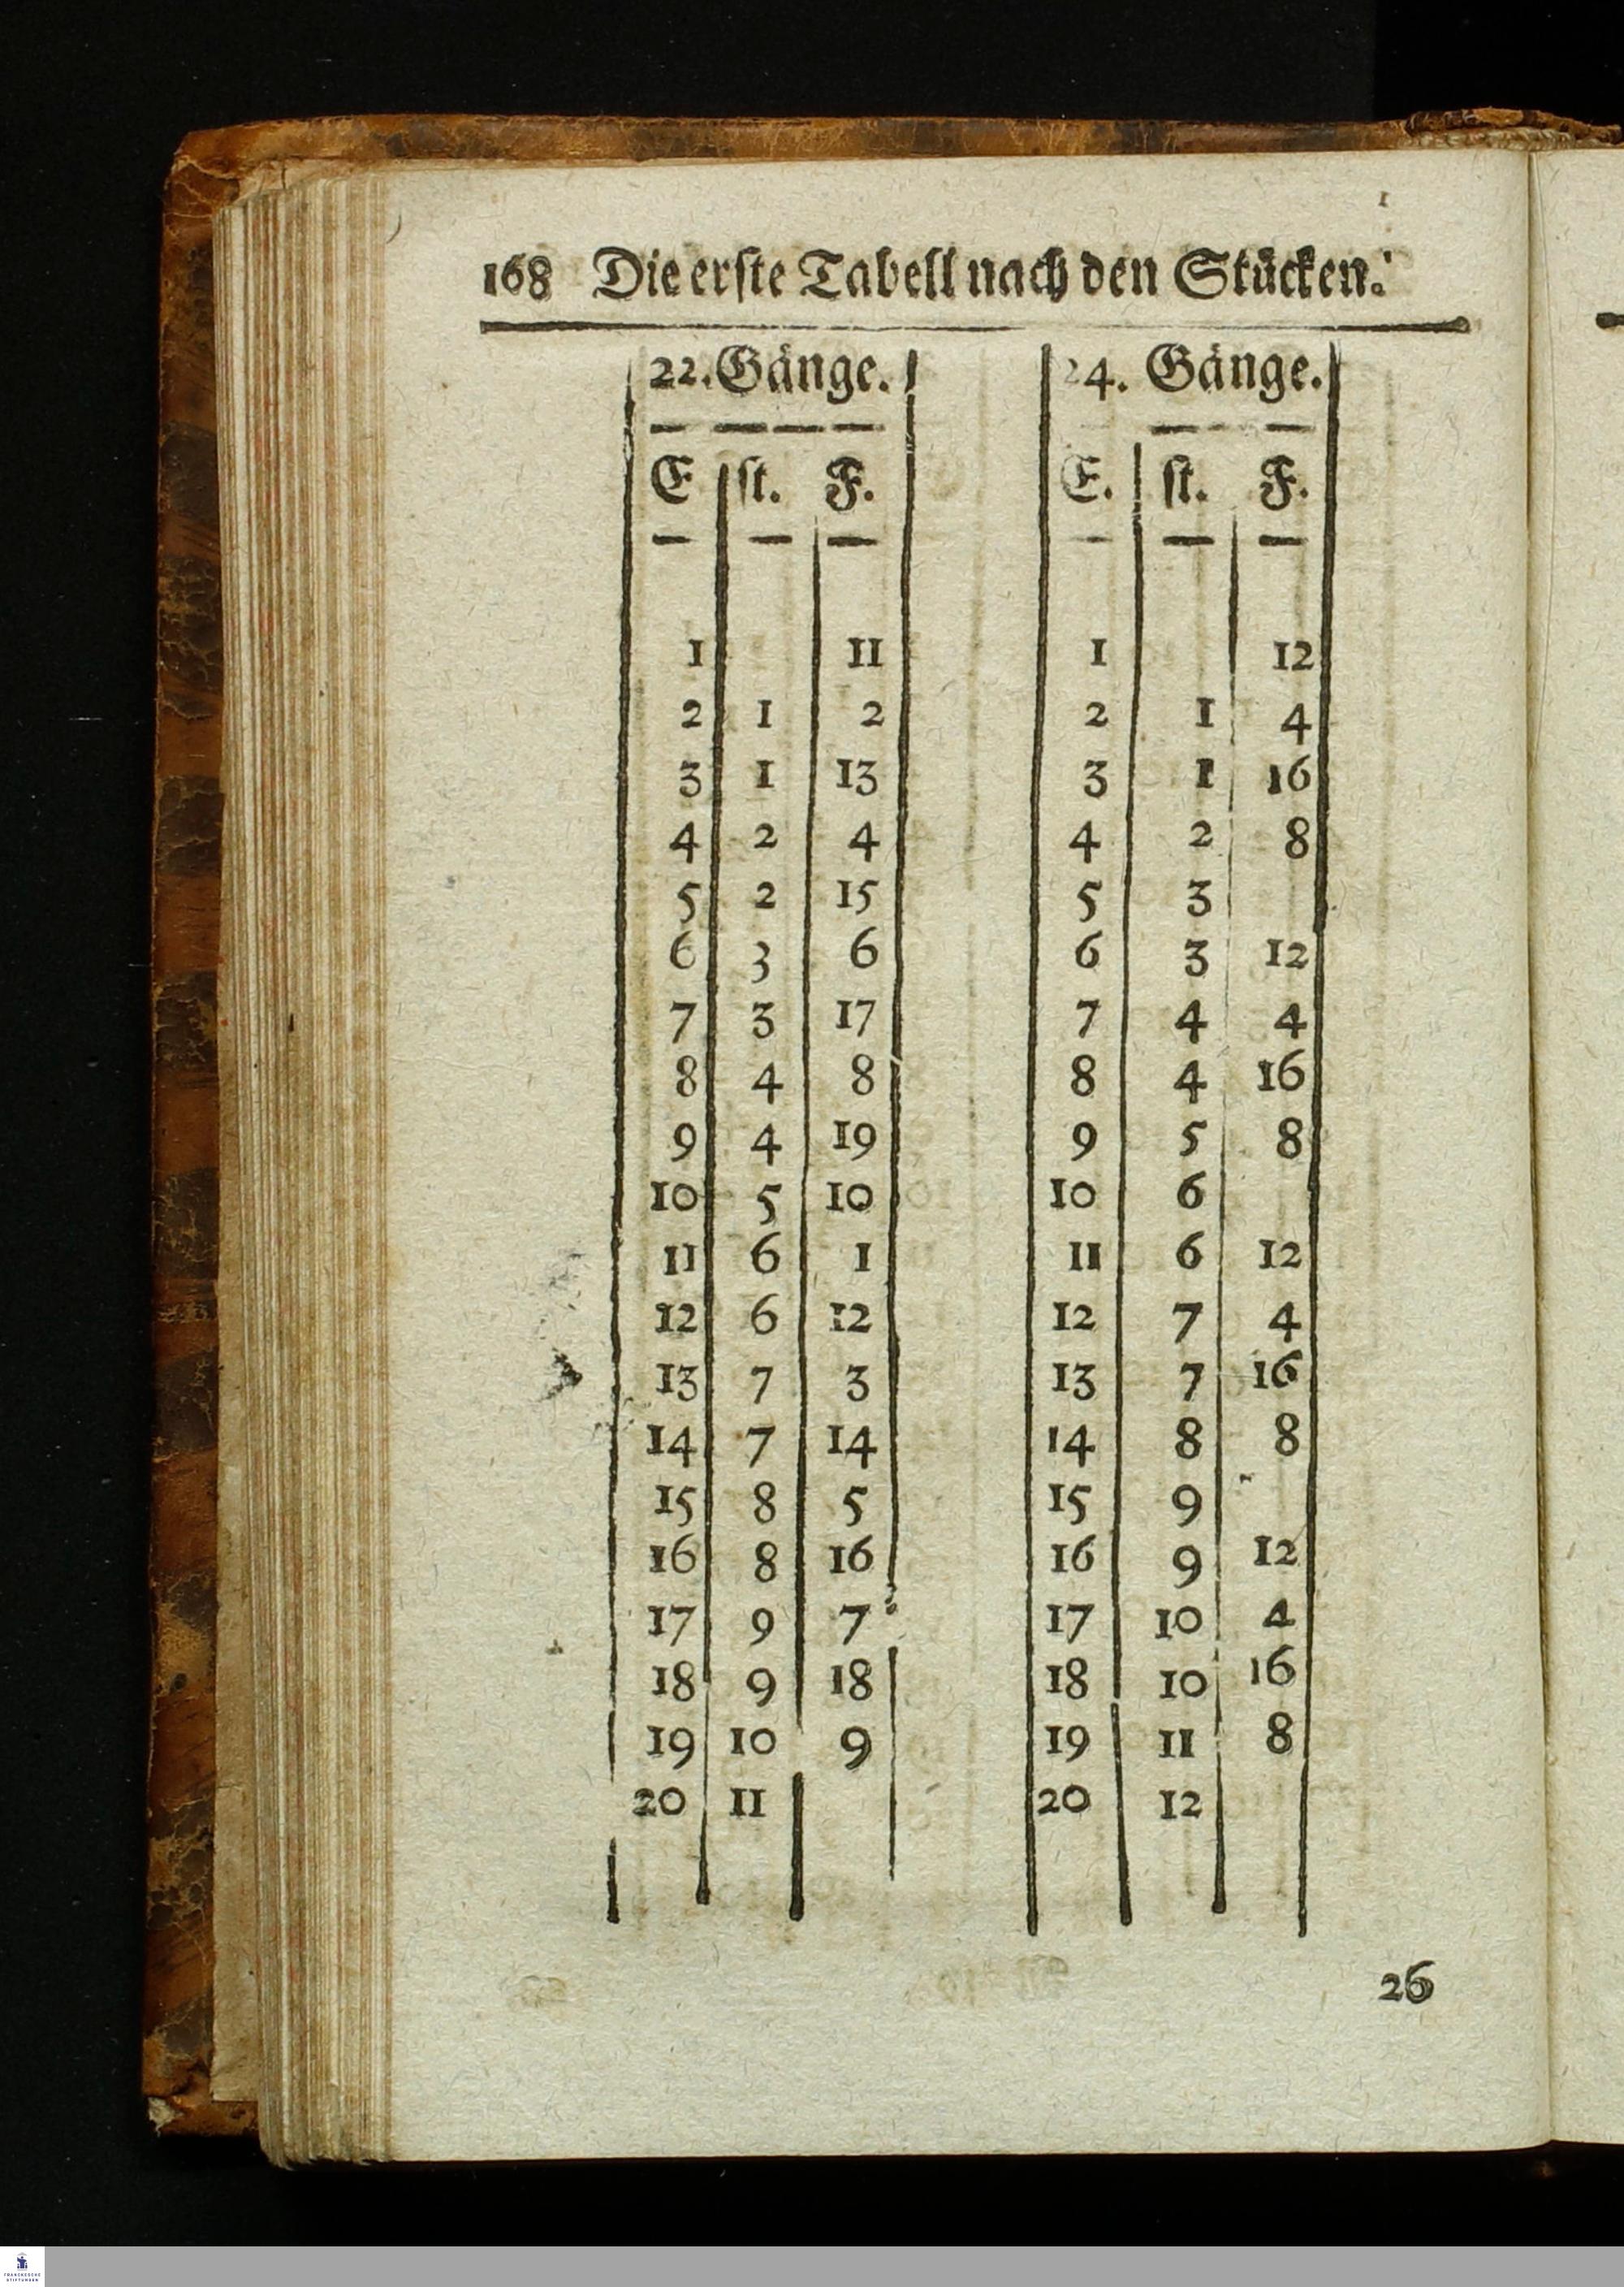 168 Die erste Tabell nach den Stücken.
22. Gänge. 24. Gänge.
E st. F. E. st. F.
1 11 1 12
2 1 2 2 1 4
3 1 13 3 1 16
4 2 4 4 2 8
5 2 15 5 3
6 3 6 6 3 12
7 3 17 7 4 4
8 4 8 8 4 16
9 4 19 9 5 8
10 5 10 10 6
11 6 1 11 6 12
12 6 12 12 7 4
13 7 3 13 7 16
14 7 14 14 8 8
15 8 5 15 9
16 8 16 16 9 12
17 9 7 17 10 4
18 9 18 18 10 16
19 10 9 19 11 8
20 11 20 12
26
FRANCKESCHE
STIFTUNGEN